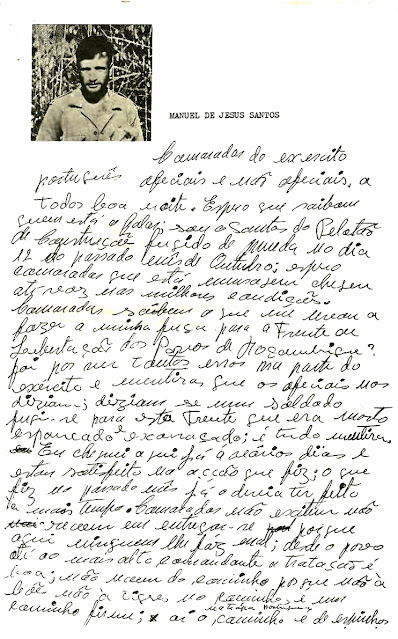 MANUEL DE JESUS SANTOS
Camaradas do exercito
português oficiais e não oficiais, a
todos boa noite. Espero que saibam
quem está a falar: sou o Santos do Pelotão
de Construção fugido de Mueda no dia
12 do passado mês de Outubro; espero
camaradas que esta mensagem chegue
até vós nas milhores condições.
Camaradas saibem o que me levou a
fazer a minha fuga para a Frente de
Libertação dos Povos de Moçambique?
foi por ver tantos erros na parte do
exército e mentiras que os oficiais nos
diziam; diziam se um soldado
fugi-se para esta Frente que era morto
espancado e; é tudo mentira
Eu cheguei aqui já a vários dias e
estou satisfeito na acção que fiz; o que
fiz no passado mês já o devia ter feito
a mais tempo. Camaradas não exitem não
receem em entregar-se porque
aqui ninguem lhe faz mal; desde o povo
até ao mais alto comandante a tratação é
boa; não receem do caminho porque não à
leões não à tigres no caminho, é um
caminho firme; ai o caminho e de espinhos